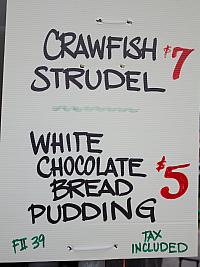 CRAWFISH $7
STRUDEL
WHITE
CHOCOLATE $5
BREAD
PUDDING
FII 39 TAX
INCLUDED